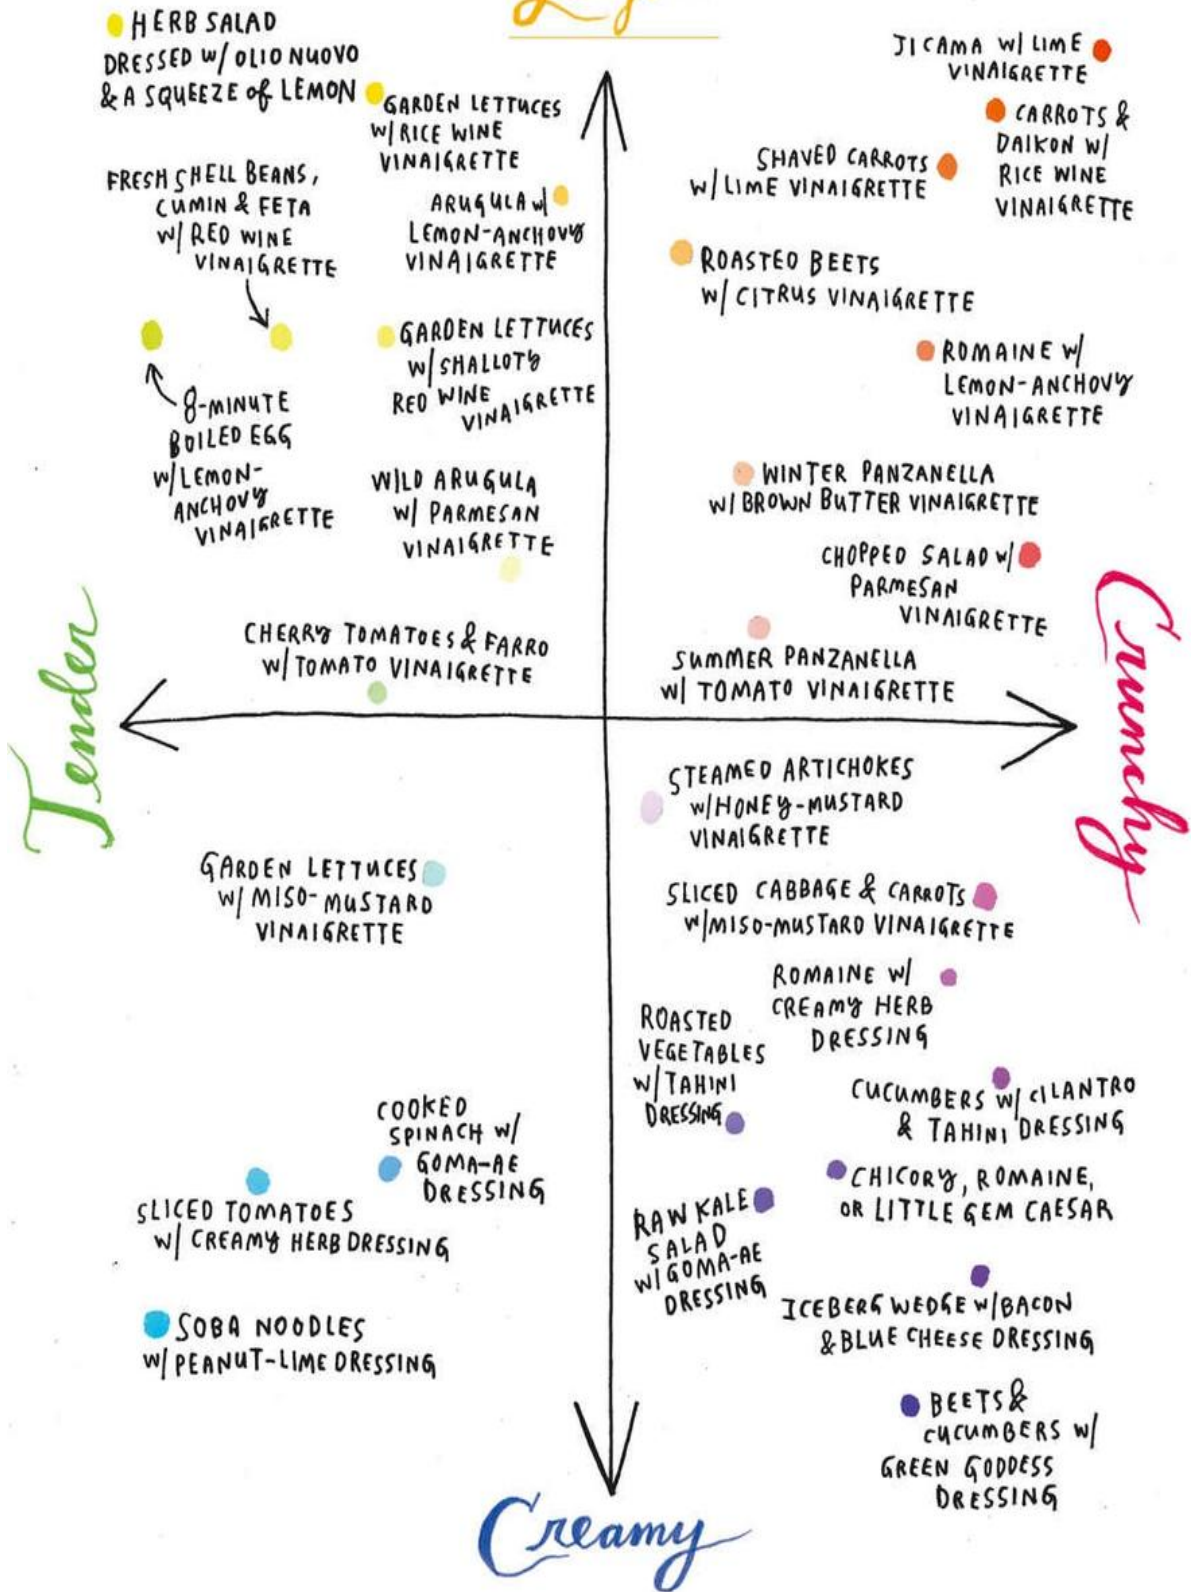 HERB SALAD
DRESSED W/ OLIO NUOVO
& A SQUEEZE of LEMON
GARDEN LETTUCES
W/ RICE WINE
VINAIGRETTE
FRESH SHELL BEANS,
CUMIN & FETA
W/ RED WINE
VINAIGRETTE
ARUGULA w/
LEMON-ANCHOVY
VINAIGRETTE
GARDEN LETTUCES
W/ SHALLOTY
RED WINE
VINAIGRETTE
8-MINUTE
BOILED EGG
W/ LEMON-
ANCHOVY
VINAIGRETTE
WILD ARUGULA
W/ PARMESAN
VINAIGRETTE
CHERRY TOMATOES & FARRO
W/ TOMATO VINAIGRETTE
JICAMA W/ LIME
VINAIGRETTE
CARROTS &
DAIKON W/
RICE WINE
VINAIGRETTE
SHAVED CARROTS
W/ LIME VINAIGRETTE
ROASTED BEETS
W/ CITRUS VINAIGRETTE
ROMAINE W/
LEMON-ANCHOVY
VINAIGRETTE
WINTER PANZANELLA
W/ BROWN BUTTER VINAIGRETTE
CHOPPED SALAD W/
PARMESAN
VINAIGRETTE
SUMMER PANZANELLA
W/ TOMATO VINAIGRETTE
Tender
Crunchy
GARDEN LETTUCES
W/ MISO-MUSTARD
VINAIGRETTE
COOKED
SPINACH W/
GOMA-AE
DRESSING
SLICED TOMATOES
W/ CREAMY HERB DRESSING
SOBA NOODLES
W/ PEANUT-LIME DRESSING
STEAMED ARTICHOKES
W/ HONEY-MUSTARD
VINAIGRETTE
SLICED CABBAGE & CARROTS
W/ MISO-MUSTARD VINAIGRETTE
ROMAINE W/
CREAMY HERB
DRESSING
ROASTED
VEGETABLES
W/ TAHINI
DRESSING
CUCUMBERS W/ CILANTRO
& TAHINI DRESSING
CHICORY, ROMAINE,
OR LITTLE GEM CAESAR
RAW KALE
SALAD
W/ GOMA-AE
DRESSING
ICEBERG WEDGE W/ BACON
& BLUE CHEESE DRESSING
BEETS &
CUCUMBERS W/
GREEN GODDESS
DRESSING
Creamy